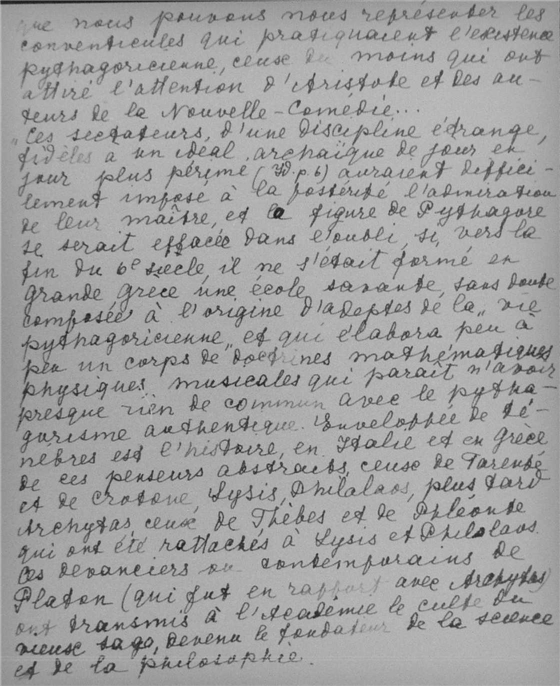 que nous pouvons nous représenter les
conventicules qui pratiquaient l'existence
pythagoricienne, ceux du moins qui ont
attiré l'attention d'Aristote et des au-
teurs de la Nouvelle-Comédie...
"Ces sectateurs, d'une discipline étrange,
fidèles à un idéal archaïque de jour en
jour plus périmé (Id. p. 6) auraient diffici-
lement imposé à la postérité l'admiration
de leur maître, et la figure de Pythagore
se serait effacée dans l'oubli, si, vers la
fin du 6e siècle, il ne s'était formé en
grande Grèce une école savante, sans doute
composée à l'origine d'adeptes de la "vie
pythagoricienne" et qui élabora peu à
peu un corps de doctrines mathématiques
physiques musicales qui paraît n'avoir
presque rien de commun avec le pytha-
gorisme authentique. Enveloppée de té-
nèbres est l'histoire, en Italie et en Grèce
de ces penseurs abstraits, ceux de Tarente
et de Crotone, Lysis, Philolaos, plus tard
Archytas ceux de Thèbes et de Phléonte
qui ont été rattachés à Lysis et Philolaos
Ces devanciers ou contemporains de
Platon (qui fut en rapport avec Archytas)
ont transmis à l'Académie le culte du
vieux sage, devenu le fondateur de la science
et de la philosophie.